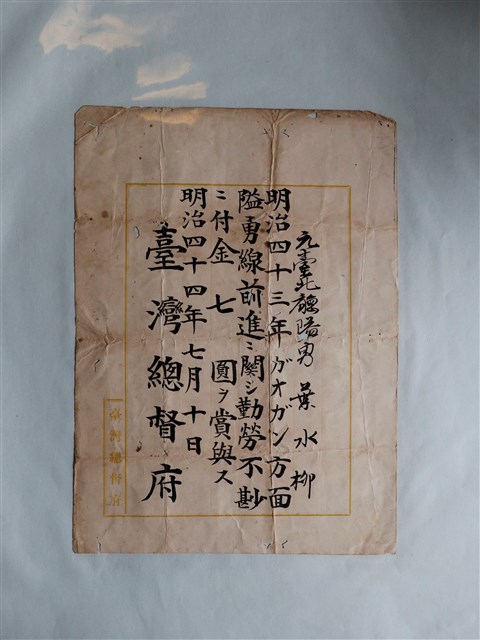 元臺北廳隘勇 葉水柳
明治四十三年ガオガン方面
隘勇線前進ニ關シ勤勞不尠
ニ付金七圓ヲ賞與ス
明治四十四年七月十日
臺灣總督府
臺灣總督府